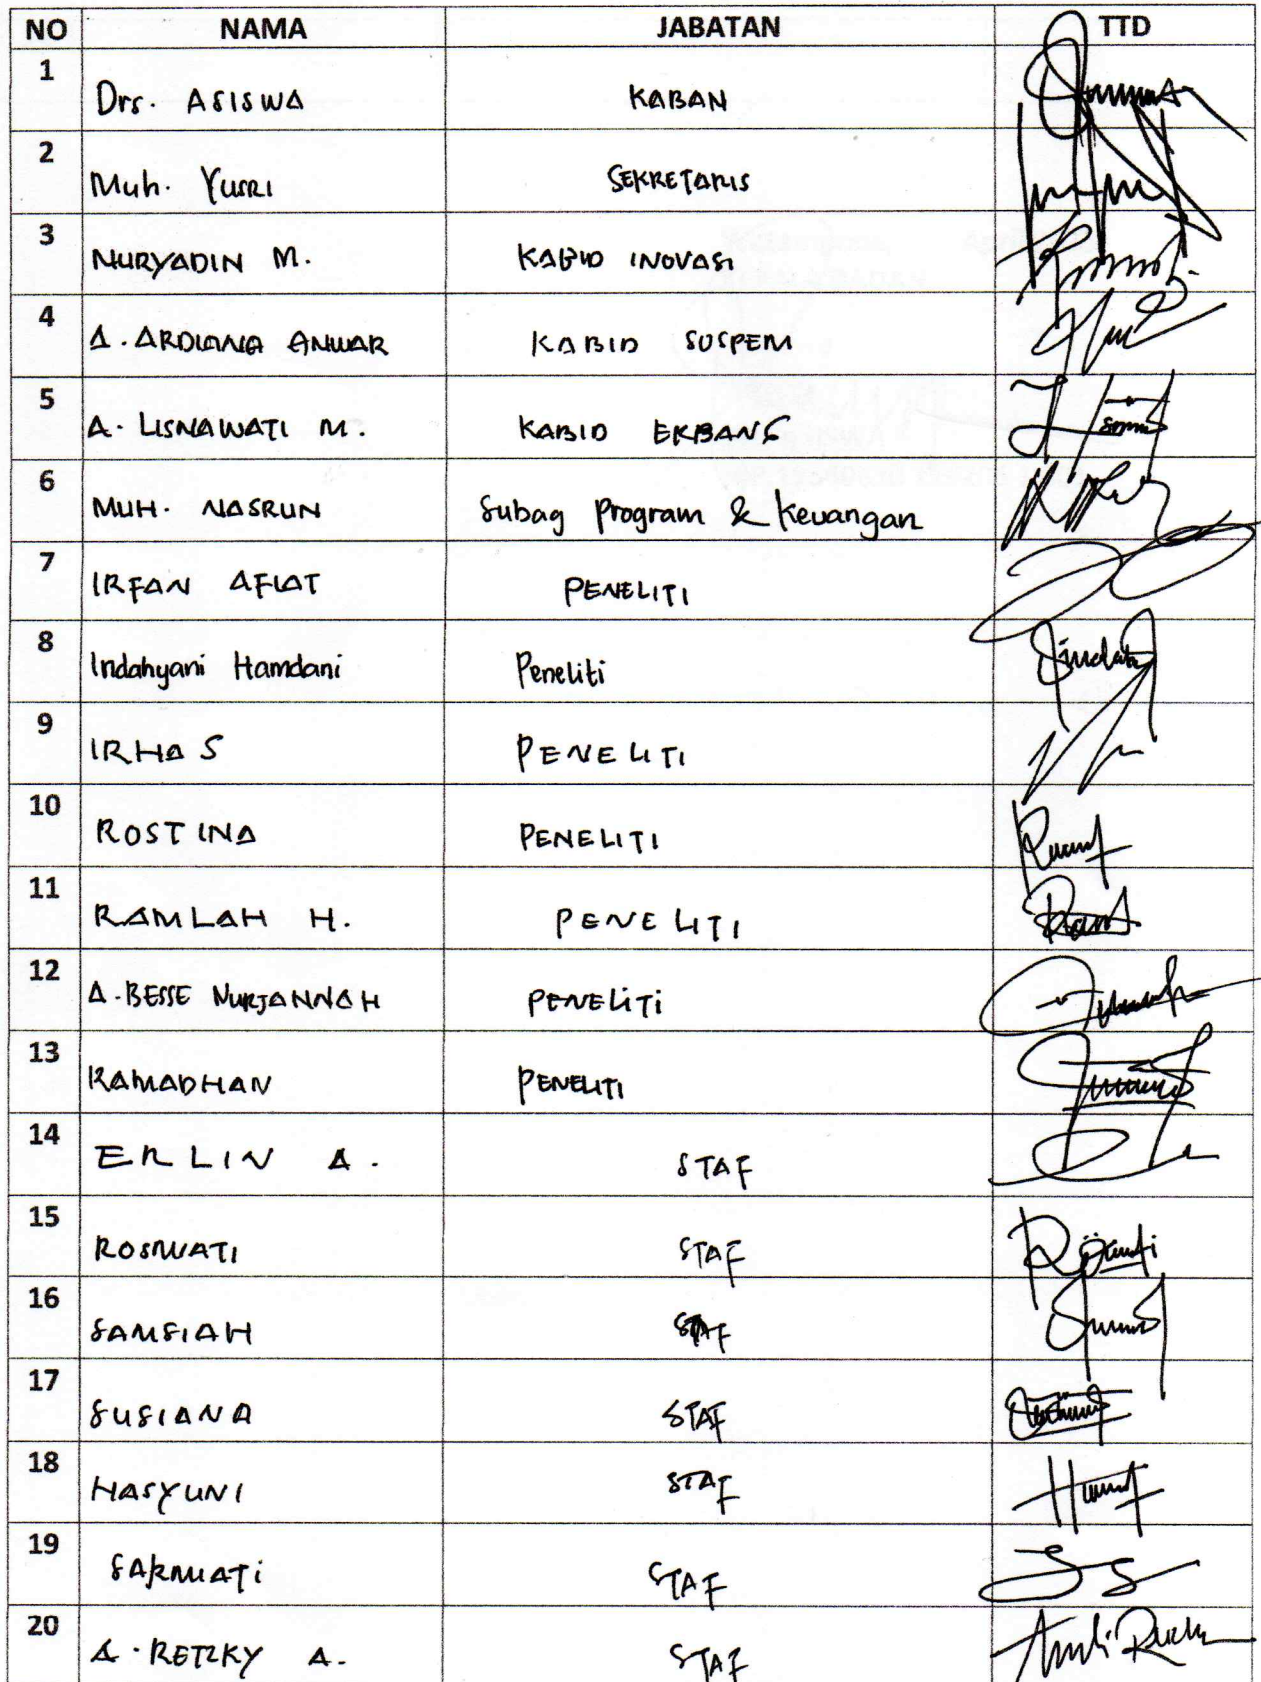 NO NAMA JABATAN TTD
1 Drs. ASISWA KABAN
2 Muh. Yusri SEKRETARIS
3 NURYADIN M. KABID INOVASI
4 A. ARDIANA ANWAR KABID SUSPEM
5 A. LISNAWATI M. KABID EKBANG
6 MUH. NASRUN Subag Program & Keuangan
7 IRFAN AFIAT PENELITI
8 Indahyani Hamdani Peneliti
9 IRHAS PENELITI
10 ROSTINA PENELITI
11 RAMLAH H. PENELITI
12 A. BESSE NURJANNAH PENELITI
13 RAMADHAN PENELITI
14 ERLIN A. STAF
15 ROSMIATI STAF
16 SAMSIAH STAF
17 SUSIANA STAF
18 HASYUNI STAF
19 SARMIATI STAF
20 A. RETZKY A. STAF